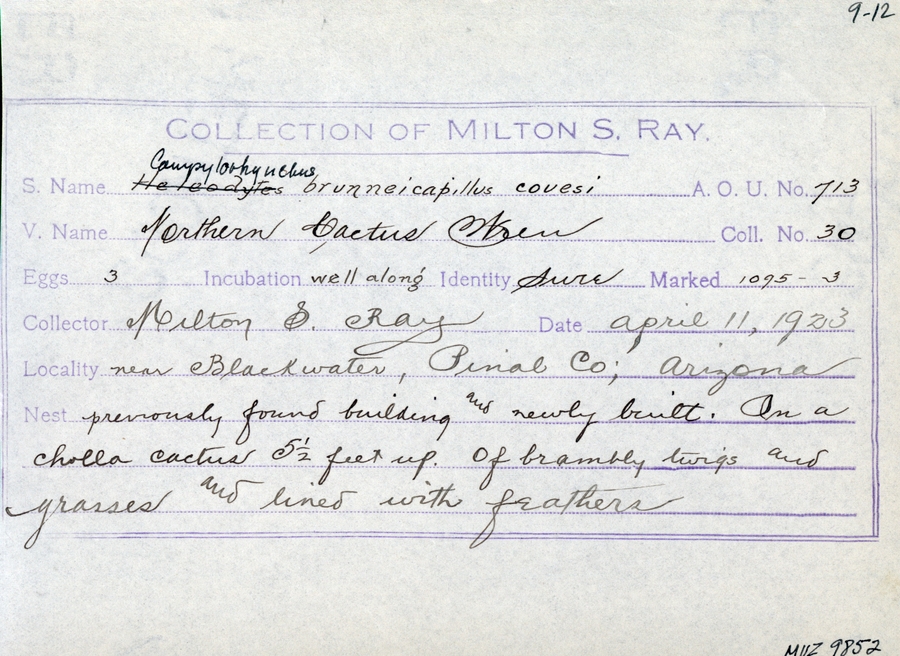 9-12
COLLECTION OF MILTON S. RAY.
Campylorhynchus
S. Name Heleodytes brunneicapillus couesi A. O. U. No. 713
V. Name Northern Cactus Wren Coll. No. 30
Eggs 3 Incubation well along Identity Sure Marked 1095-3
Collector Milton S. Ray Date april 11, 1933
Locality near Blackwater, Pinal Co; arizona
Nest previously found building and newly built. In a
cholla cactus 5½ feet up. Of brambly twigs and
grasses and lined with feathers
MVZ 9852